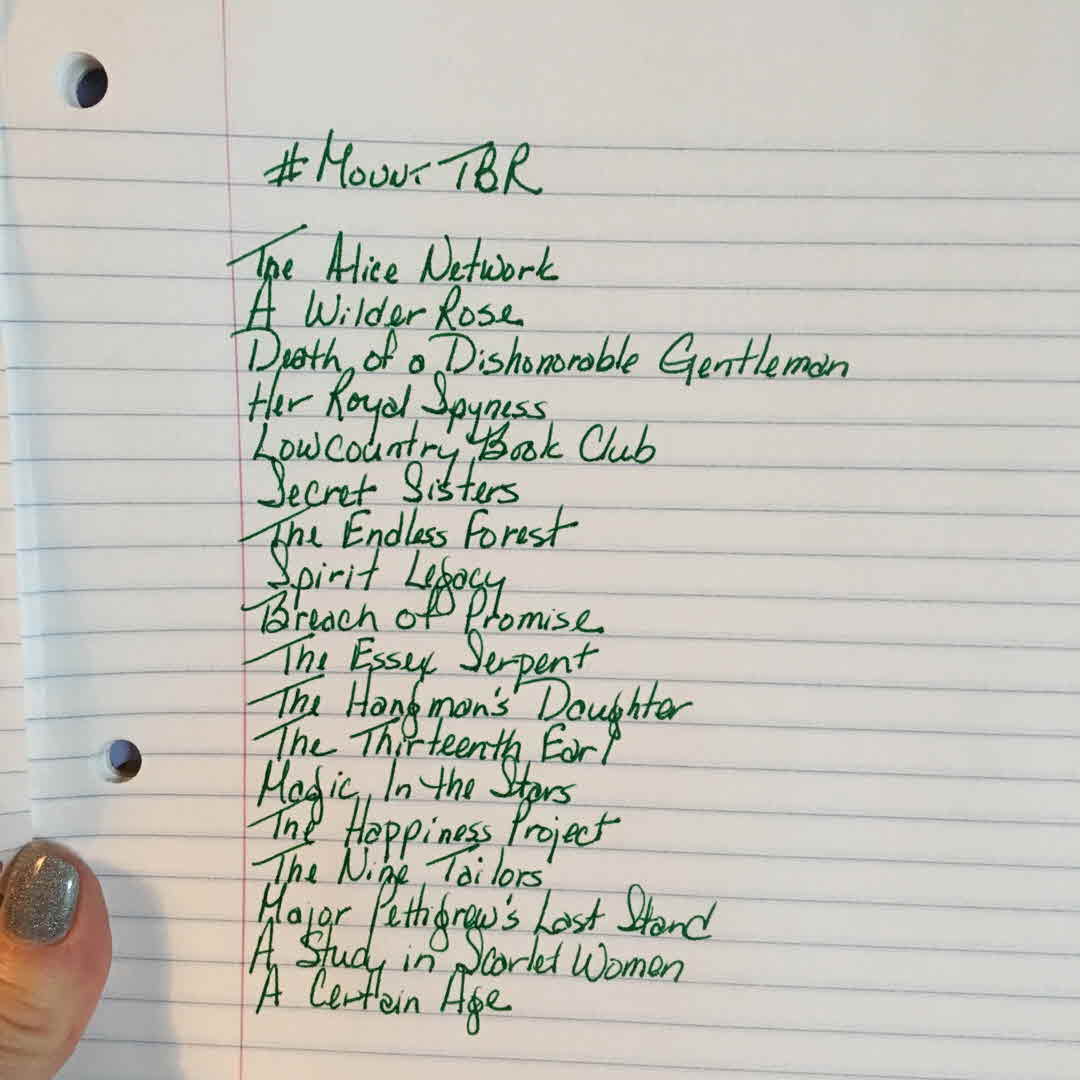 #Mount TBR
The Alice Network
A Wilder Rose
Death of a Dishonorable Gentleman
Her Royal Spyness
Lowcountry Book Club
Secret Sisters
The Endless Forest
Spirit Legacy
Breach of Promise
The Essex Serpent
The Hangman's Daughter
The Thirteenth Earl
Magic In the Stars
The Happiness Project
The Nine Tailors
Major Pethigrew's Last Stand
A Study in Scarlet Women
A Certain Age